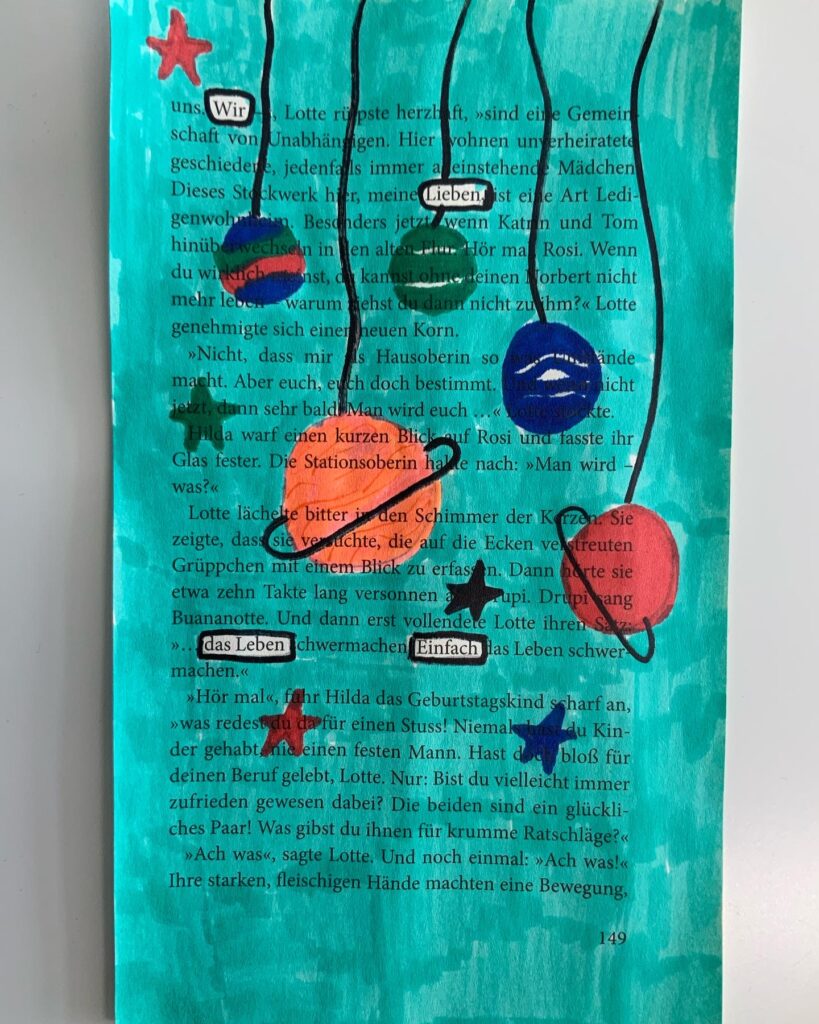 uns. Wir , Lotte rülpste herzhaft, »sind eine Gemein-
schaft von Unabhängigen. Hier wohnen unverheiratete
geschiedene, jedenfalls immer alleinstehende Mädchen
Dieses Stockwerk hier, meine Lieben, ist eine Art Ledi-
genwohnheim. Besonders jetzt, wenn Katrin und Tom
hinüberwechseln in den alten Flur. Hör mal, Rosi. Wenn
du wirklich meinst, du kannst ohne deinen Norbert nicht
mehr leben – warum ziehst du dann nicht zu ihm?« Lotte
genehmigte sich einen neuen Korn.
»Nicht, dass mir als Hausoberin so was Umstände
macht. Aber euch, euch doch bestimmt. Und wenn nicht
jetzt, dann sehr bald. Man wird euch …« Lotte stockte.
Hilda warf einen kurzen Blick auf Rosi und fasste ihr
Glas fester. Die Stationsoberin hakte nach: »Man wird –
was?«
Lotte lächelte bitter in den Schimmer der Kerzen. Sie
zeigte, dass sie versuchte, die auf die Ecken verstreuten
Grüppchen mit einem Blick zu erfassen. Dann hörte sie
etwa zehn Takte lang versonnen auf Drupi. Drupi sang
Buananotte. Und dann erst vollendete Lotte ihren Satz:
»… das Leben schwermachen. Einfach das Leben schwer-
machen.«
»Hör mal«, fuhr Hilda das Geburtstagskind scharf an,
»was redest du da für einen Stuss! Niemals hast du Kin-
der gehabt, nie einen festen Mann. Hast doch bloß für
deinen Beruf gelebt, Lotte. Nur: Bist du vielleicht immer
zufrieden gewesen dabei? Die beiden sind ein glückli-
ches Paar! Was gibst du ihnen für krumme Ratschläge?«
»Ach was«, sagte Lotte. Und noch einmal: »Ach was!«
Ihre starken, fleischigen Hände machten eine Bewegung,
149